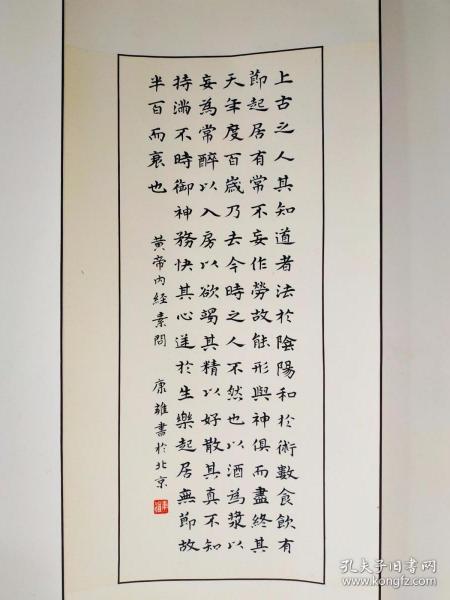 上古之人其知道者法於陰陽和於術數食飲有
節起居有常不妄作勞故能形與神俱而盡終其
天年度百歲乃去今時之人不然也以酒為漿以
妄為常醉以入房以欲竭其精以好散其真不知
持滿不時御神務快其心逆於生樂起居無節故
半百而衰也 黃帝內經素問 康雄書於北京
孔夫子旧书网
www.kongfz.com